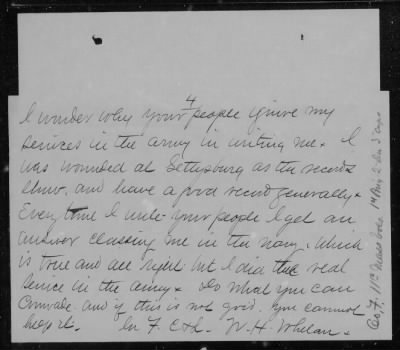 4
I wonder why your people ignore my
services in the army in writing me. I
was wounded at Gettysburg as the records
show. and have a good record generally.
Every time I write your people I get an
answer classing me in the navy. which
is true and all right but I did the real
service in the army. Do what you can
Comrade. and if this is not good. you cannot
help it. In F. C & L. W. H. Whelan.
Co, F, 11th Mass Vols. 1st Brig 2 Div 3' Corps